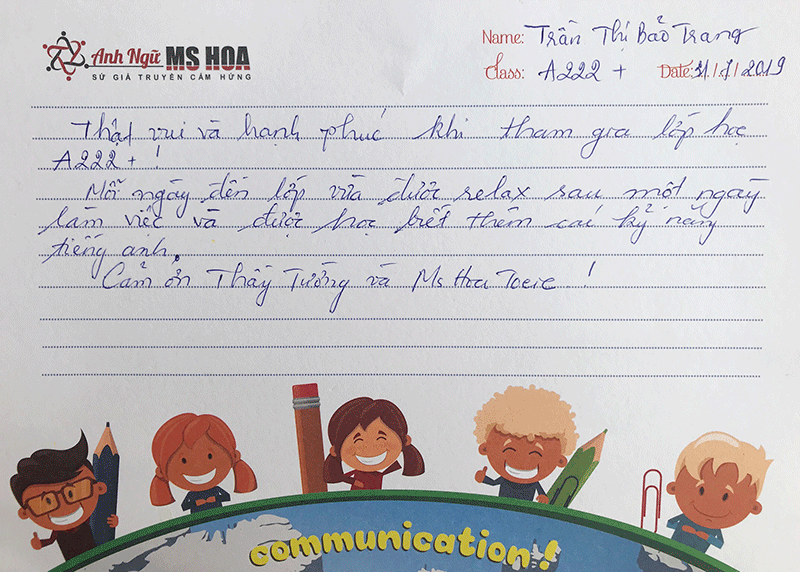 Anh Ngữ MS HOA
SỨ GIẢ TRUYỀN CẢM HỨNG
Name: Trần Thị Bảo Trang
Class: A222 +
Date: 31/7/2019
Thật vui và hạnh phúc khi tham gia lớp học
A222 + !
Mỗi ngày đến lớp vừa được relax sau một ngày
làm việc và được học biết thêm các kỹ năng
tiếng anh.
Cảm ơn Thầy Tưởng và Ms Hoa Toeic !
communication!